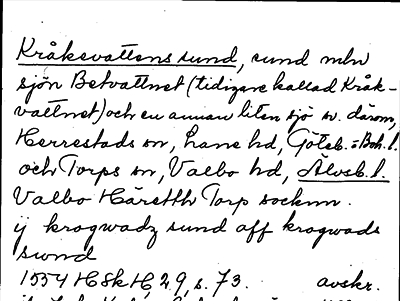 Kråkevattens sund, sund mln
sjön Betvattnet (tidigare kallad Kråk-
vattnet) och en annan liten sjö sv. därom,
Herrestads sn, Lane hd, Göteb.=Boh. l.
och Torps sn, Valbo hd, Älvsb. l.
Valbo Häretth Torp socknn.
ij krogwadz sund aff krogwads
swnd
1554 HSkH, 29, s. 73. avskr.